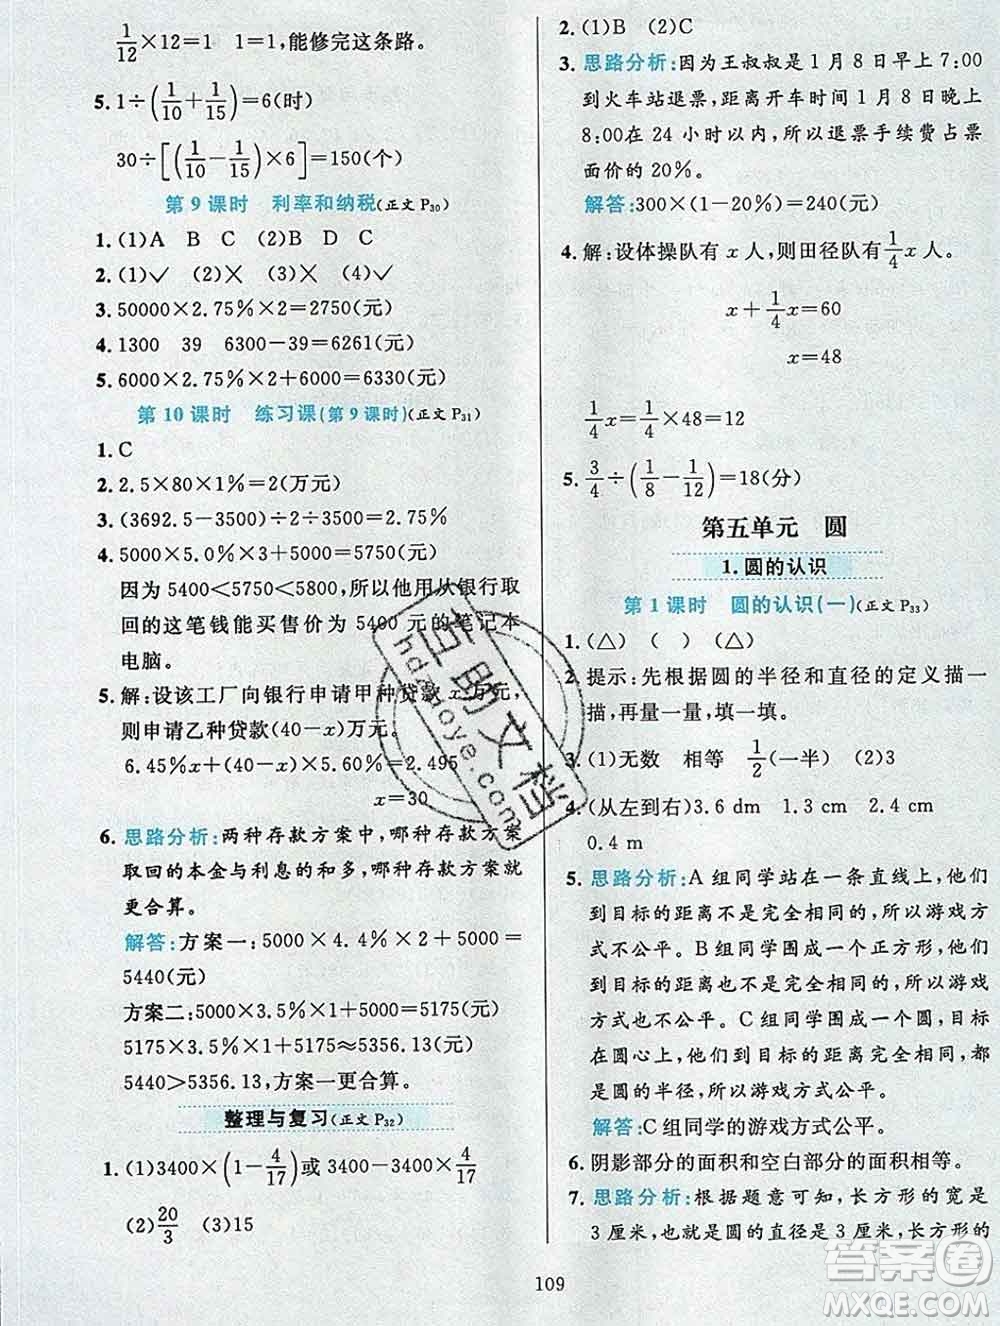 1/12×12=1　1=1,能修完这条路。
5. 1÷(1/10+1/15)=6(时)
30÷[(1/10−1/15)×6]=150(个)
第9课时　利率和纳税(正文P30)
1. (1)A　B　C　(2)B　D　C
2. (1)✓　(2)×　(3)×　(4)✓
3. 50000×2.75%×2=2750(元)
4. 1300　39　6300−39=6261(元)
5. 6000×2.75%×2+6000=6330(元)
第10课时　练习课(第9课时)(正文P31)
1. C
2. 2.5×80×1%=2(万元)
3. (3692.5−3500)÷2÷3500=2.75%
4. 5000×5.0%×3+5000=5750(元)
因为5400<5750<5800,所以他用从银行取
回的这笔钱能买售价为5400元的笔记本
电脑。
5. 解:设该工厂向银行申请甲种贷款x万元,
则申请乙种贷款(40−x)万元。
6.45%x+(40−x)×5.60%=2.495
x=30
6. 思路分析:两种存款方案中,哪种存款方案
取回的本金与利息的和多,哪种存款方案就
更合算。
解答:方案一:5000×4.4%×2+5000=
5440(元)
方案二:5000×3.5%×1+5000=5175(元)
5175×3.5%×1+5175≈5356.13(元)
5440>5356.13,方案一更合算。
整理与复习(正文P32)
1. (1)3400×(1−4/17)或3400−3400×4/17
(2)20/3　(3)15
2. (1)B　(2)C
3. 思路分析:因为王叔叔是1月8日早上7:00
到火车站退票,距离开车时间1月8日晚上
8:00在24小时以内,所以退票手续费占票
面价的20%。
解答:300×(1−20%)=240(元)
4. 解:设体操队有x人,则田径队有1/4x人。
x+1/4x=60
x=48
1/4x=1/4×48=12
5. 3/4÷(1/8−1/12)=18(分)
第五单元　圆
1.圆的认识
第1课时　圆的认识(一)(正文P33)
1. (△)　(　)　(△)
2. 提示:先根据圆的半径和直径的定义描一
描,再量一量,填一填。
3. (1)无数　相等　1/2(一半)　(2)3
4. (从左到右)3.6 dm　1.3 cm　2.4 cm
0.4 m
5. 思路分析:A组同学站在一条直线上,他们
到目标的距离不完全相等,所以游戏方
式不公平。B组同学围成一个正方形,他们
到目标的距离也不完全相等,所以游戏
方式也不公平。C组同学围成一个圆,目标
在圆心上,他们到目标的距离完全相同,都是
圆的半径,所以游戏方式公平。
解答:C组同学的游戏方式公平。
6. 阴影部分的面积和空白部分的面积相等。
7. 思路分析:根据题意可知,长方形的宽是
3厘米,也就是圆的直径是3厘米,长方形的
109
互助文档
hdzhoye.com
答案圈
MXQE.COM